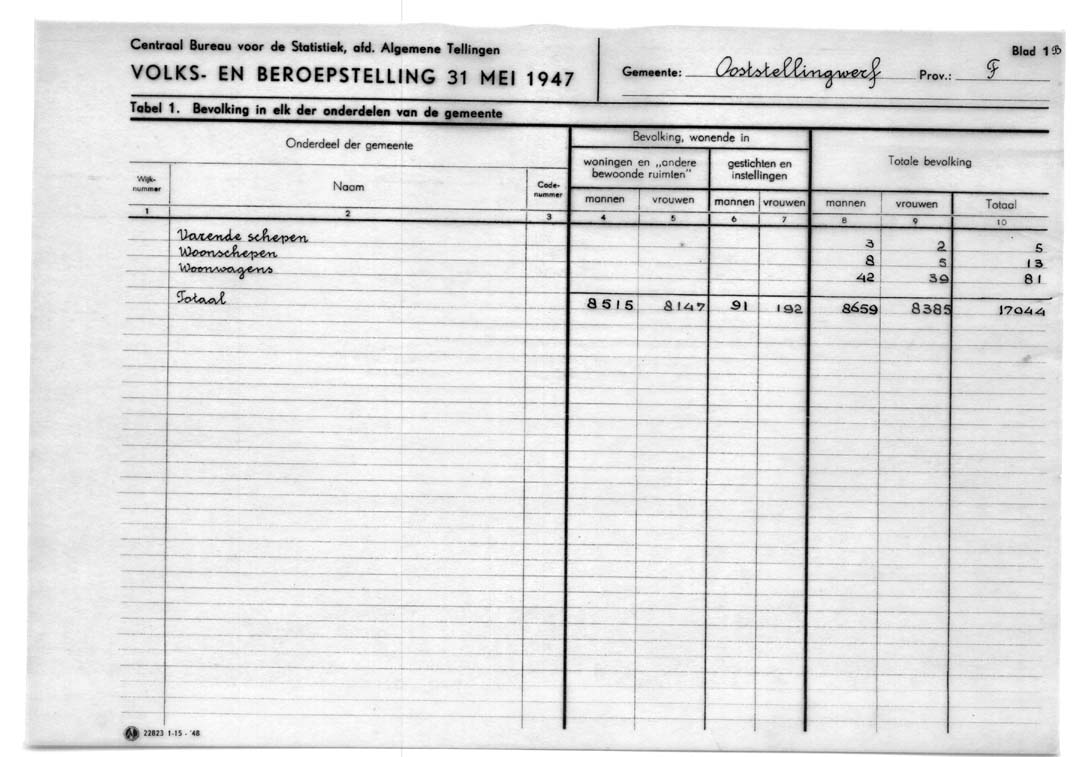 Centraal Bureau voor de Statistiek, afd. Algemene Tellingen
VOLKS- EN BEROEPSTELLING 31 MEI 1947
Gemeente: Ooststellingwerf Prov.: F
Blad 1B
Tabel 1. Bevolking in elk der onderdelen van de gemeente
Onderdeel der gemeente
Bevolking, wonende in
Totale bevolking
woningen en „andere bewoonde ruimten”
gestichten en instellingen
Wijk-nummer
Naam
Code-nummer
mannen vrouwen mannen vrouwen mannen vrouwen Totaal
1 2 3 4 5 6 7 8 9 10
Varende schepen 3 2 5
Woonschepen 8 5 13
Woonwagens 42 39 81
Totaal 8515 8147 91 192 8659 8385 17044
22823 1-15 - '48